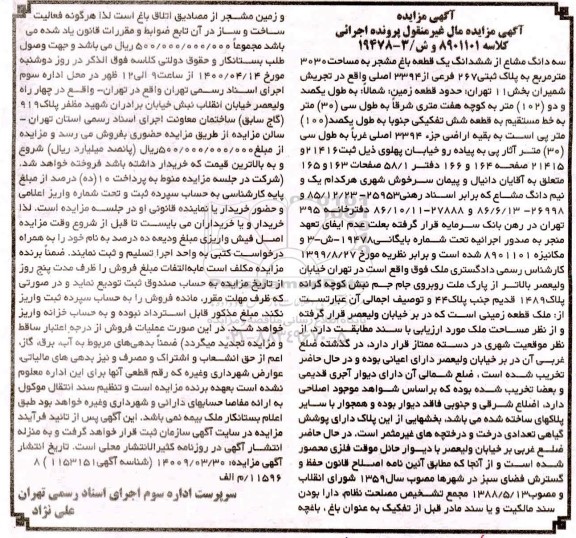 آگهی مزایده
آگهی مزایده مال غیرمنقول پرونده اجرائی
کلاسه ۸۹۰۱۱۰۱ و ش/۳-۱۹۴۷۸
سه دانگ مشاع از ششدانگ یک قطعه باغ مشجر به مساحت ۳۰۳۰
مترمربع به پلاک ثبتی ۲۶۷ فرعی از ۳۳۹۴ اصلی واقع در تجریش
شمیران بخش ۱۱ تهران: حدود قطعه زمین: شمالاً: به طول یکصد
و دو (۱۰۲) متر به کوچه هفت متری شرقاً به طول سی (۳۰) متر
به خط مستقیم به قطعه شش تفکیکی جنوبا به طول یکصد (۱۰۰)
متر پی است به بقیه اراضی جزء ۳۳۹۴ اصلی غرباً به طول سی
(۳۰) متر آثار پی به پیاده رو خیابان پهلوی ذیل ثبت ۲۱۴۱۶ و
۲۱۴۱۵ صفحه ۱۶۴ و ۱۶۶ دفتر ۵۸/۱ صفحات ۱۶۳ و ۱۶۵
متعلق به آقایان دانیال و پیمان سرخوش شهری هرکدام یک و
نیم دانگ مشاع که برابر اسناد رهنی ۲۵۹۵۳-۸۵/۱۲/۲۳ و
۲۶۹۹۸-۸۶/۶/۱۳ و ۲۷۸۸۸-۸۶/۱۰/۱۱ دفترخانه ۳۹۵
تهران در رهن بانک سرمایه قرار گرفته بعلت عدم ایفای تعهد
منجر به صدور اجرائیه تحت شماره بایگانی ۱۹۴۷۸-ش-۳ و
مکانیزه ۸۹۰۱۱۰۱ شده است و برابر نظریه مورخ ۱۳۹۹/۸/۲۷
کارشناس رسمی دادگستری ملک فوق واقع است در تهران خیابان
ولیعصر بالاتر از پارک ملت روبروی جام جم نبش کوچه کرانه
پلاک ۱۴۸۹ قدیم جنب پلاک ۴۴ و توصیف اجمالی آن عبارتست
از: ملک قطعه زمینی است که در بر خیابان ولیعصر قرار گرفته
و از نظر مساحت ملک مورد ارزیابی با سند مطابقت دارد. از
نظر موقعیت شهری در دسته ممتاز قرار دارد. در گذشته ضلع
غربی آن در بر خیابان ولیعصر دارای اعیانی بوده و در حال حاضر
تخریب شده است ، ضلع شمالی آن دارای دیوار آجری قدیمی
و بعضا تخریب شده بوده که براساس شواهد موجود اصلاحی
دارد، اضلاع شرقی و جنوبی فاقد دیوار بوده و همجوار با سایر
پلاکهای ساخته شده می باشد، بخشهایی از این پلاک دارای پوشش
گیاهی تعدادی درخت و درختچه های غیرمثمر است. در حال حاضر
ضلع غربی بر خیابان ولیعصر با دیوار حائل موقت فلزی محصور
شده است و از آنجا که مطابق آئین نامه اصلاح قانون حفظ و
گسترش فضای سبز در شهرها مصوب سال ۱۳۵۹ شورای انقلاب
و مصوب ۱۳۸۸/۵/۱۳ مجمع تشخیص مصلحت نظام، دارا بودن
سند مالکیت و یا سند مادر قبل از تفکیک به عنوان باغ ، باغچه
و زمین مشجر از مصادیق اتلاق باغ است لذا هرگونه فعالیت
ساخت و ساز در آن تابع ضوابط و مقررات قانون یاد شده می
باشد مجموعاً ۵۰۰/۰۰۰/۰۰۰/۰۰۰ ریال می باشد و جهت وصول
طلب بستانکار و حقوق دولتی کلاسه فوق الذکر در روز دوشنبه
مورخ ۱۴۰۰/۰۴/۱۴ از ساعت ۹ الی ۱۲ ظهر در محل اداره سوم
اجرای اسناد رسمی تهران واقع در تهران- واقع در چهار راه
ولیعصر خیابان انقلاب نبش خیابان برادران شهید مظفر پلاک ۹۱۹
(گاج سابق) ساختمان معاونت اجرای اسناد رسمی استان تهران -
سالن مزایده از طریق مزایده حضوری بفروش می رسد و مزایده
از مبلغ ۵۰۰/۰۰۰/۰۰۰/۰۰۰ ریال (پانصد میلیارد ریال) شروع
و به بالاترین قیمت که خریدار داشته باشد فروخته خواهد شد.
(شرکت در جلسه مزایده منوط به پرداخت ۱۰(ده) درصد از مبلغ
پایه کارشناسی به حساب سپرده ثبت و تحت شماره واریز اعلامی
و حضور خریدار یا نماینده قانونی او در جلسه مزایده است. لذا
خریدار و یا خریداران می بایست تا قبل از شروع وقت مزایده
اصل فیش واریزی مبلغ ودیعه ده درصد به نام خود را به همراه
درخواست کتبی به واحد اجرا تسلیم و ثبت نمایند. ضمناً برنده
مزایده مکلف است مابه‌التفات مبلغ فروش را ظرف مدت پنج روز
از تاریخ مزایده به حساب صندوق ثبت تودیع نماید و در صورتی
که ظرف مهلت مقرر، مانده فروش را به حساب سپرده ثبت واریز
نکند، مبلغ مذکور قابل استرداد نبوده و به حساب خزانه واریز
خواهد شد. در این صورت عملیات فروش از درجه اعتبار ساقط
و مزایده تجدید میگردد) ضمناً بدهی‌های مربوط به آب، برق، گاز،
اعم از حق انشعاب و اشتراک و مصرف و نیز بدهی های مالیاتی،
عوارض شهرداری وغیره که رقم قطعی آنها برای این اداره معلوم
نشده است بعهده برنده مزایده است و تنظیم سند انتقال موکول
به ارائه مفاصا حسابهای دارائی و شهرداری وغیره خواهد بود طبق
اعلام بستانکار ملک بیمه نمی باشد. این آگهی پس از تائید فرآیند
مزایده در سایت آگهی سازمان ثبت قرار خواهد گرفت و به منزله
انتشار آگهی در روزنامه کثیرالانتشار محلی است. تاریخ انتشار
آگهی مزایده: ۱۴۰۰۹/۰۳/۳۰ (شناسه آگهی ۱۱۵۳۱۵۱) ۸
۱۱۵۹۶/م الف
سرپرست اداره سوم اجرای اسناد رسمی تهران
علی نژاد